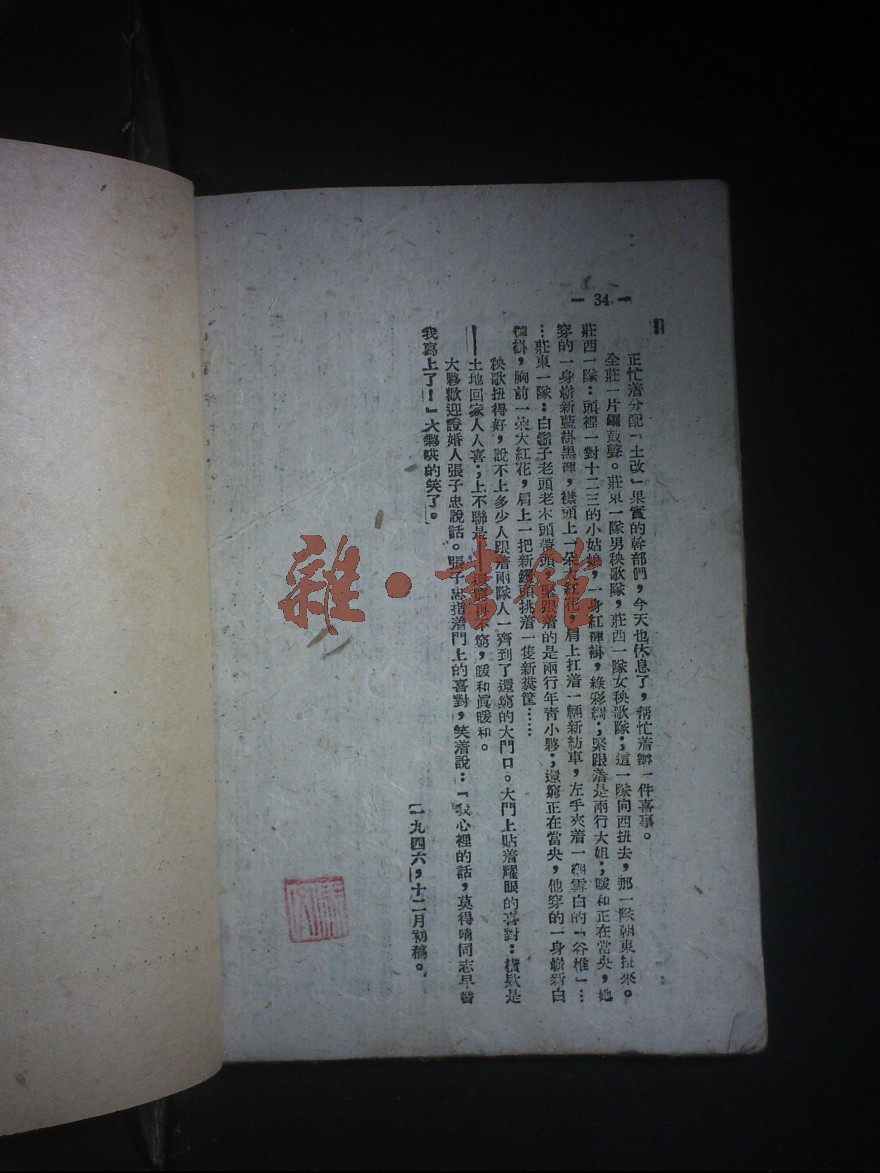 — 34 —
正忙着分配「土改」果實的幹部們，今天也休息了，幫忙着辦一件喜事。
全莊一片鑼鼓聲。莊東一隊男秧歌隊，莊西一隊女秧歌隊；這一隊向西扭去，那一隊朝東扭來。
莊西一隊：頭裡一對十二三的小姑娘，一身紅褲褂，綠彩綢；緊跟着是兩行大姐；暖和正在當央，她
穿的一身嶄新藍褂黑褲，襟頭上一朵大紅花，肩上扛着一輛新紡車，左手夾着一綑雪白的「谷椎」…
…莊東一隊：白鬍子老頭老木頭帶頭，緊跟着的是兩行年青小夥；還窮正在當央，他穿的一身嶄新白
褲褂，胸前一朵大紅花，肩上一把新钁頭挑着一隻新糞筐……
秧歌扭得好，說不上多少人跟着兩隊人一齊到了還窮的大門口。大門上貼着耀眼的喜對：橫欵是
——土地回家人人喜；上不聯是 還窮再不窮，暖和眞暖和。
大夥歡迎證婚人張子忠說話。張子忠指着門上的喜對，笑着說：「我心裡的話，莫得晴同志早替
我寫上了！」大夥哄的笑了。
一九四六，十二月初稿。
雜·書館